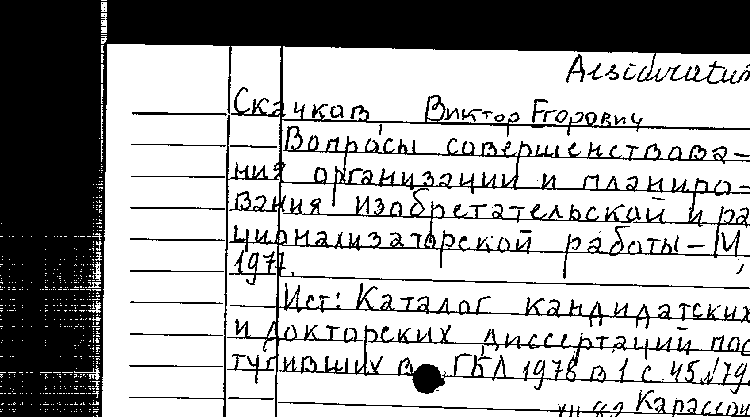 Desideratum
Скачков, Виктор Егорович
Вопросы совершенствова-
ния организации и планиро-
вания изобретательской и ра
ционализаторской работы – М,
1977.
Ист: Каталог кандидатских
и докторских диссертаций пос
тупивших в ГБЛ 1978 в 1 с 45 №79